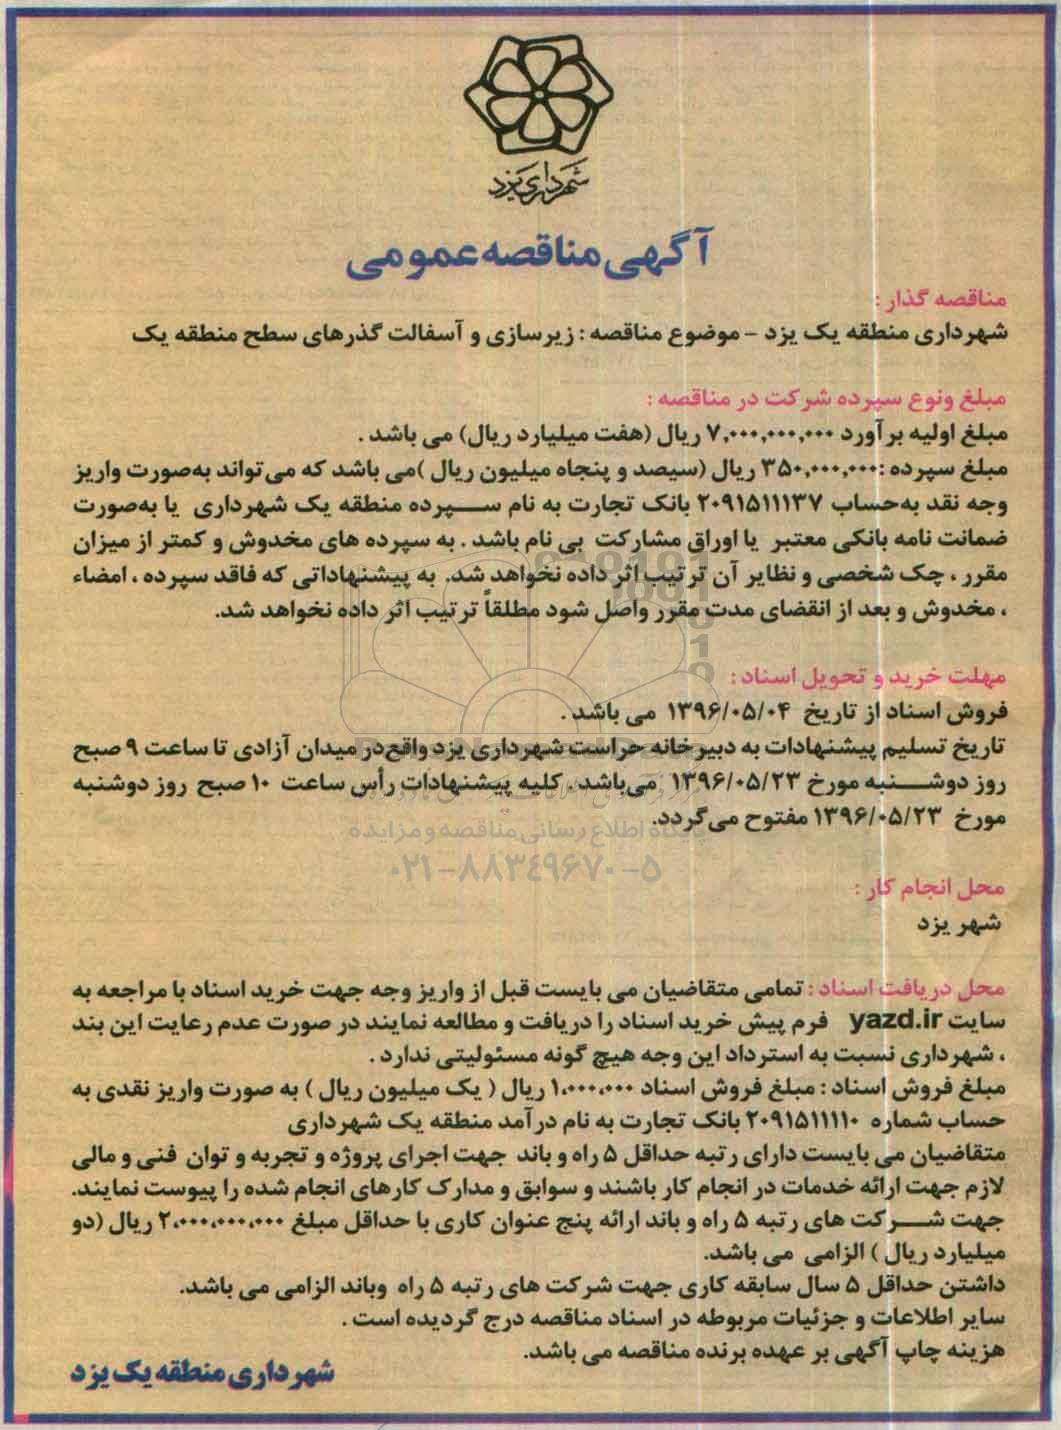 شهرداری یزد
آگهی مناقصه عمومی
مناقصه گذار :
شهرداری منطقه یک یزد - موضوع مناقصه : زیرسازی و آسفالت گذرهای سطح منطقه یک
مبلغ ونوع سپرده شرکت در مناقصه :
مبلغ اولیه برآورد ۷,۰۰۰,۰۰۰,۰۰۰ ریال (هفت میلیارد ریال) می باشد .
مبلغ سپرده :۳۵۰,۰۰۰,۰۰۰ ریال (سیصد و پنجاه میلیون ریال )می باشد که می تواند به‌صورت واریز
وجه نقد به‌حساب ۲۰۹۱۵۱۱۱۳۷ بانک تجارت به نام سپرده منطقه یک شهرداری یا به‌صورت
ضمانت نامه بانکی معتبر یا اوراق مشارکت بی نام باشد . به سپرده های مخدوش و کمتر از میزان
مقرر ، چک شخصی و نظایر آن ترتیب اثر داده نخواهد شد. به پیشنهاداتی که فاقد سپرده ، امضاء
، مخدوش و بعد از انقضای مدت مقرر واصل شود مطلقاً ترتیب اثر داده نخواهد شد.
مهلت خرید و تحویل اسناد :
فروش اسناد از تاریخ ۱۳۹۶/۰۵/۰۴ می باشد .
تاریخ تسلیم پیشنهادات به دبیرخانه حراست شهرداری یزد واقع‌در میدان آزادی تا ساعت ۹ صبح
روز دوشنبه مورخ ۱۳۹۶/۰۵/۲۳ می‌باشد . کلیه پیشنهادات رأس ساعت ۱۰ صبح روز دوشنبه
مورخ ۱۳۹۶/۰۵/۲۳ مفتوح می‌گردد.
پایگاه اطلاع رسانی مناقصه و مزایده
۰۲۱-۸۸۳۴۹۶۷۰-۵
محل انجام کار :
شهر یزد
محل دریافت اسناد : تمامی متقاضیان می بایست قبل از واریز وجه جهت خرید اسناد با مراجعه به
سایت yazd.ir فرم پیش خرید اسناد را دریافت و مطالعه نمایند در صورت عدم رعایت این بند
، شهرداری نسبت به استرداد این وجه هیچ گونه مسئولیتی ندارد .
مبلغ فروش اسناد : مبلغ فروش اسناد ۱,۰۰۰,۰۰۰ ریال ( یک میلیون ریال ) به صورت واریز نقدی به
حساب شماره ۲۰۹۱۵۱۱۱۱۰ بانک تجارت به نام درآمد منطقه یک شهرداری
متقاضیان می بایست دارای رتبه حداقل ۵ راه و باند جهت اجرای پروژه و تجربه و توان فنی و مالی
لازم جهت ارائه خدمات در انجام کار باشند و سوابق و مدارک کارهای انجام شده را پیوست نمایند.
جهت شرکت های رتبه ۵ راه و باند ارائه پنج عنوان کاری با حداقل مبلغ ۲,۰۰۰,۰۰۰,۰۰۰ ریال (دو
میلیارد ریال ) الزامی می باشد.
داشتن حداقل ۵ سال سابقه کاری جهت شرکت های رتبه ۵ راه وباند الزامی می باشد.
سایر اطلاعات و جزئیات مربوطه در اسناد مناقصه درج گردیده است .
هزینه چاپ آگهی بر عهده برنده مناقصه می باشد.
شهرداری منطقه یک یزد